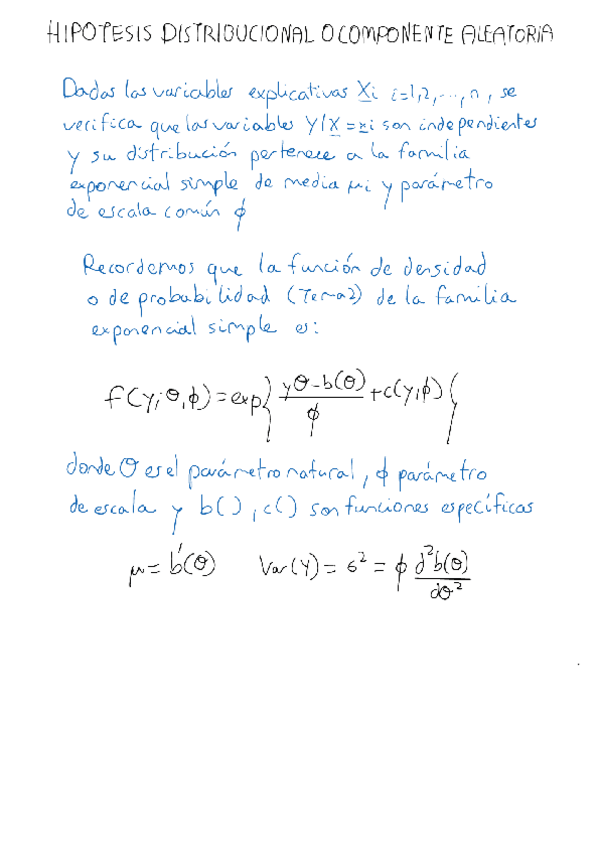 HIPOTESIS DISTRIBUCIONAL O COMPONENTE ALEATORIA
Dadas las variables explicativas Xi i=1,2,...,n, se
verifica que las variables Y/X=xi son independientes
y su distribución pertenece a la familia
exponencial simple de media μi y parámetro
de escala común ϕ
Recordemos que la función de densidad
o de probabilidad (Tema2) de la familia
exponencial simple es:
f(y;θ,ϕ)=exp{ (yθ-b(θ))/ϕ + c(y,ϕ) }
donde θ es el parámetro natural, ϕ parámetro
de escala y b(), c() son funciones específicas
μ=b'(θ) Var(Y)=σ²=ϕ d²b(θ)/dθ²